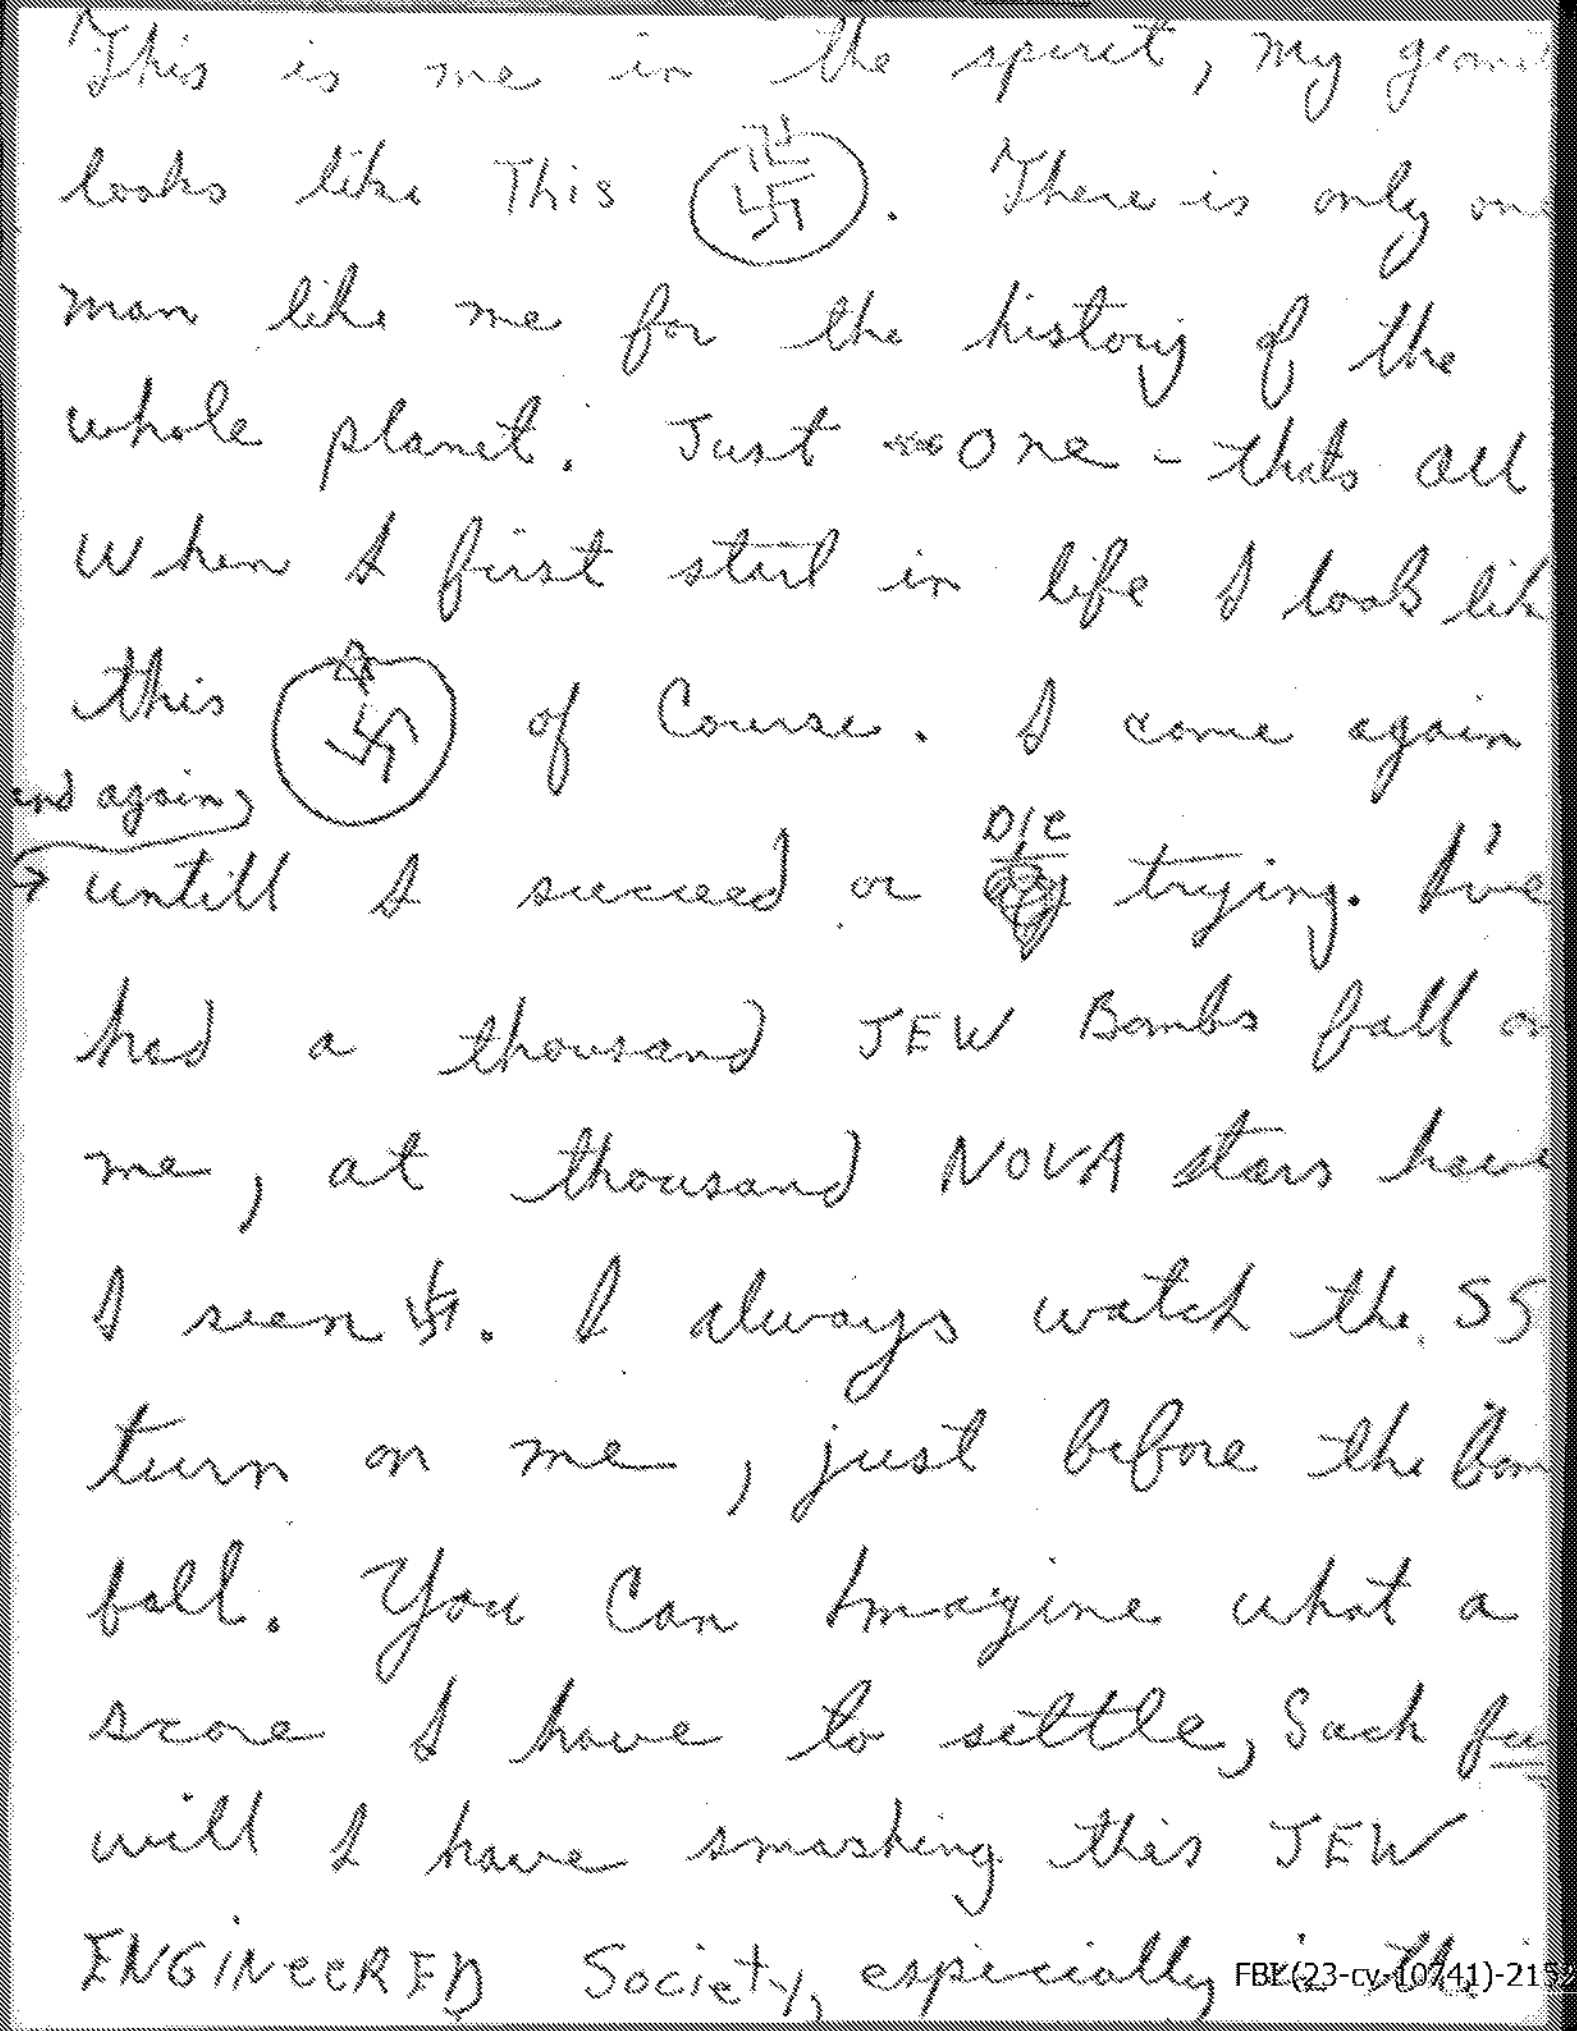 This is me in the spirit, my
looks like This . There is only
man like me for the history of the
whole planet. Just One - thats all
When I first start in life I look
this of Course. I come again
and again
untill I succeed or DIE trying. I've
had a thousand JEW Bombs fall
me, at thousand NOVA stars have
I seen 卐. I always watch the SS
turn on me, just before the
fall. You Can Imagine what a
score I have to settle, Such
will I have smashing this JEW
ENGINEERED Society, especially
FBI(23-cv-10741)-2152